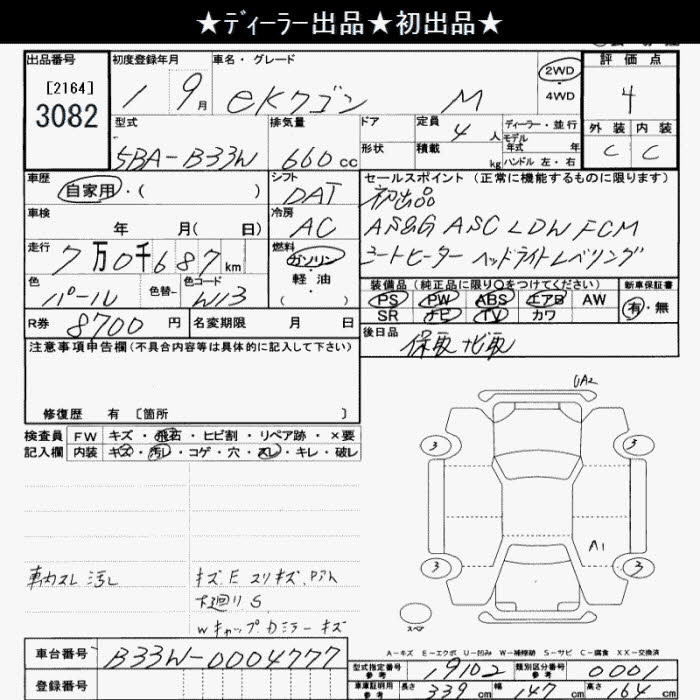 ★ディーラー出品★初出品★
出品番号
[2164]
3082
初度登録年月
1 9月
車名・グレード
eKワゴン M
2WD
・
4WD
評価点
4
外装 内装
C C
型式
5BA-B33W
排気量
660cc
ドア
形状
定員
4人
積載 kg
ディーラー・並行
モデル
年式 年
ハンドル 左・右
車歴
自家用・( )
シフト
DAT
車検
年 月( 日)
冷房
AC
走行
7万0千687km
燃料
ガソリン
・
軽油
( )
色
パール
色替-
色コード
W13
R券 8700円
名変期限 月 日
セールスポイント (正常に機能するものに限ります)
初出品
AS&G ASC LDW FCM
シートヒーター ヘッドライトレベリング
装備品 (純正品に限り○をつけてください)
PS PW ABS エアB AW
SR ナビ TV カワ
新車保証書
有・無
後日品
保取 ナビ取
注意事項申告欄(不具合内容等は具体的に記入して下さい)
修復歴 有 〔箇所 〕
検査員
記入欄
FW キズ・飛石・ヒビ割・リペア跡・×要
内装 キズ・汚レ・コゲ・穴・スレ・キレ・破レ
車内スレ 汚レ
キズ E スリキズ.
下廻り S
Wキャップ.カミラーキズ
UA2
3
3
A1
3
3
スペア
A-キズ E-エクボ U-凹み W-補修跡 S-サビ C-腐食 XX-交換済
車台番号 B33W-0004777
登録番号
型式指定番号
参考
19102
類別区分番号
参考
0001
車庫証明用
参考
長さ 339cm 幅 147cm 高さ 164cm